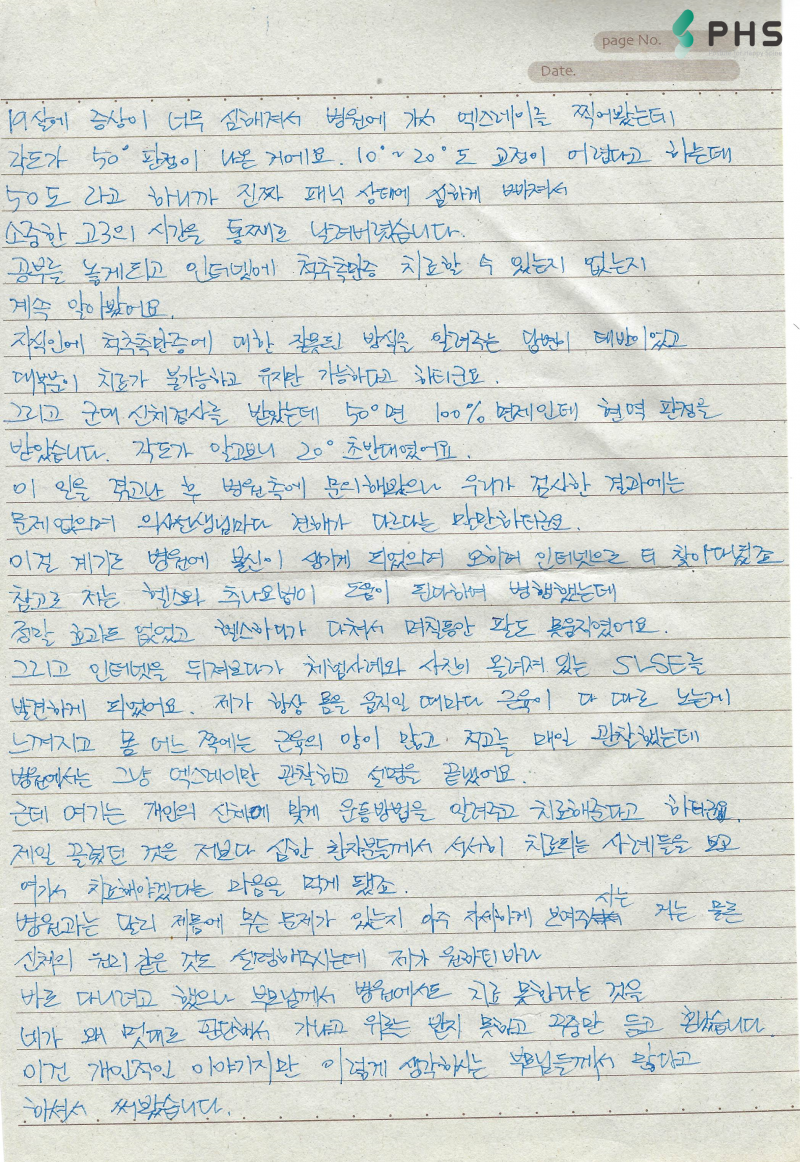 page No.
PHS
Date.
19살에 증상이 너무 심해져서 병원에 가서 엑스레이를 찍어봤는데
각도가 50° 판정이 나온 거에요. 10°~20°도 교정이 어렵다고 하는데
50도 라고 하니까 진짜 패닉 상태에 심하게 빠져서
소중한 고3의 시간을 통째로 날려버렸습니다.
공부는 놓게되고 인터넷에 척추측만증 치료할 수 있는지 없는지
계속 알아봤어요.
지식인에 척추측만증에 대한 잘못된 방식을 알려주는 답변이 태반이었고
대부분이 치료가 불가능하고 유지만 가능하다고 하더군요.
그리고 군대 신체검사를 받았는데 50°면 100% 면제인데 현역 판정을
받았습니다. 각도가 알고보니 20° 초반대였어요.
이 일을 겪고난 후 병원측에 문의해봤으나 우리가 검사한 결과에는
문제없으며 의사선생님마다 견해가 다르다는 말만하더군요.
이걸 계기로 병원에 불신이 생기게 되었으며 오히려 인터넷으로 더 찾아다녔죠
참고로 저는 헬스와 추나요법이 도움이 된다하여 병행했는데
정말 효과도 없었고 헬스하다가 다쳐서 며칠동안 팔도 못움직였어요.
그리고 인터넷을 뒤져보다가 체험사례와 사진이 올려져 있는 SLSE를
발견하게 되었어요. 제가 항상 몸을 움직일 때마다 근육이 다 따로 노는게
느껴지고 몸 어느 쪽에는 근육의 양이 많고 적고를 매일 관찰했는데
병원에서는 그냥 엑스레이만 관찰하고 설명을 끝냈어요.
근데 여기는 개인의 신체에 맞게 운동방법을 알려주고 치료해준다고 하더군요.
제일 끌렸던 것은 저보다 심한 환자분들께서 서서히 치료되는 사례들을 보고
여기서 치료해야겠다는 마음을 먹게 됐죠.
병원과는 달리 제몸에 무슨 문제가 있는지 아주 자세하게 보여주시는 거는 물론
신체의 원리 같은 것도 설명해주시는데 제가 원하던바라
바로 다니려고 했으나 부모님께서 병원에서도 치료 못한다는 것을
네가 왜 멋대로 판단해서 가냐고 위로는 받지 못하고 꾸중만 듣고 혼났습니다.
이건 개인적인 이야기지만 이렇게 생각하시는 부모님들께서 많다고
하셔서 써봤습니다.